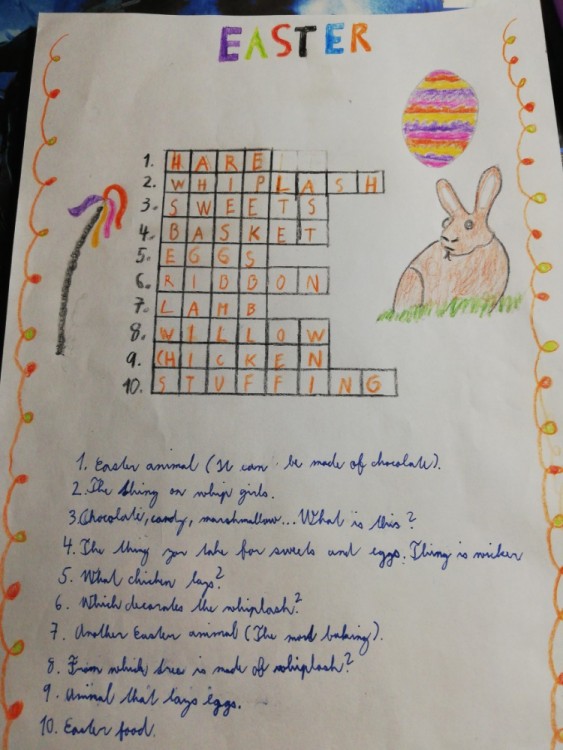 EASTER
1. HARE
2. WHIPLASH
3. SWEETS
4. BASKET
5. EGGS
6. RIBBON
7. LAMB
8. WILLOW
9. CHICKEN
10. STUFFING
1. Easter animal (It can be made of chocolate).
2. The thing on whip girls.
3. Chocolate, candy, marshmallow... What is this?
4. The thing you take for sweets and eggs. Thing is wicker
5. What chicken lays?
6. Which decorates the whiplash?
7. Another Easter animal (The most baking).
8. From which tree is made of whiplash?
9. Animal that lays eggs.
10. Easter food.